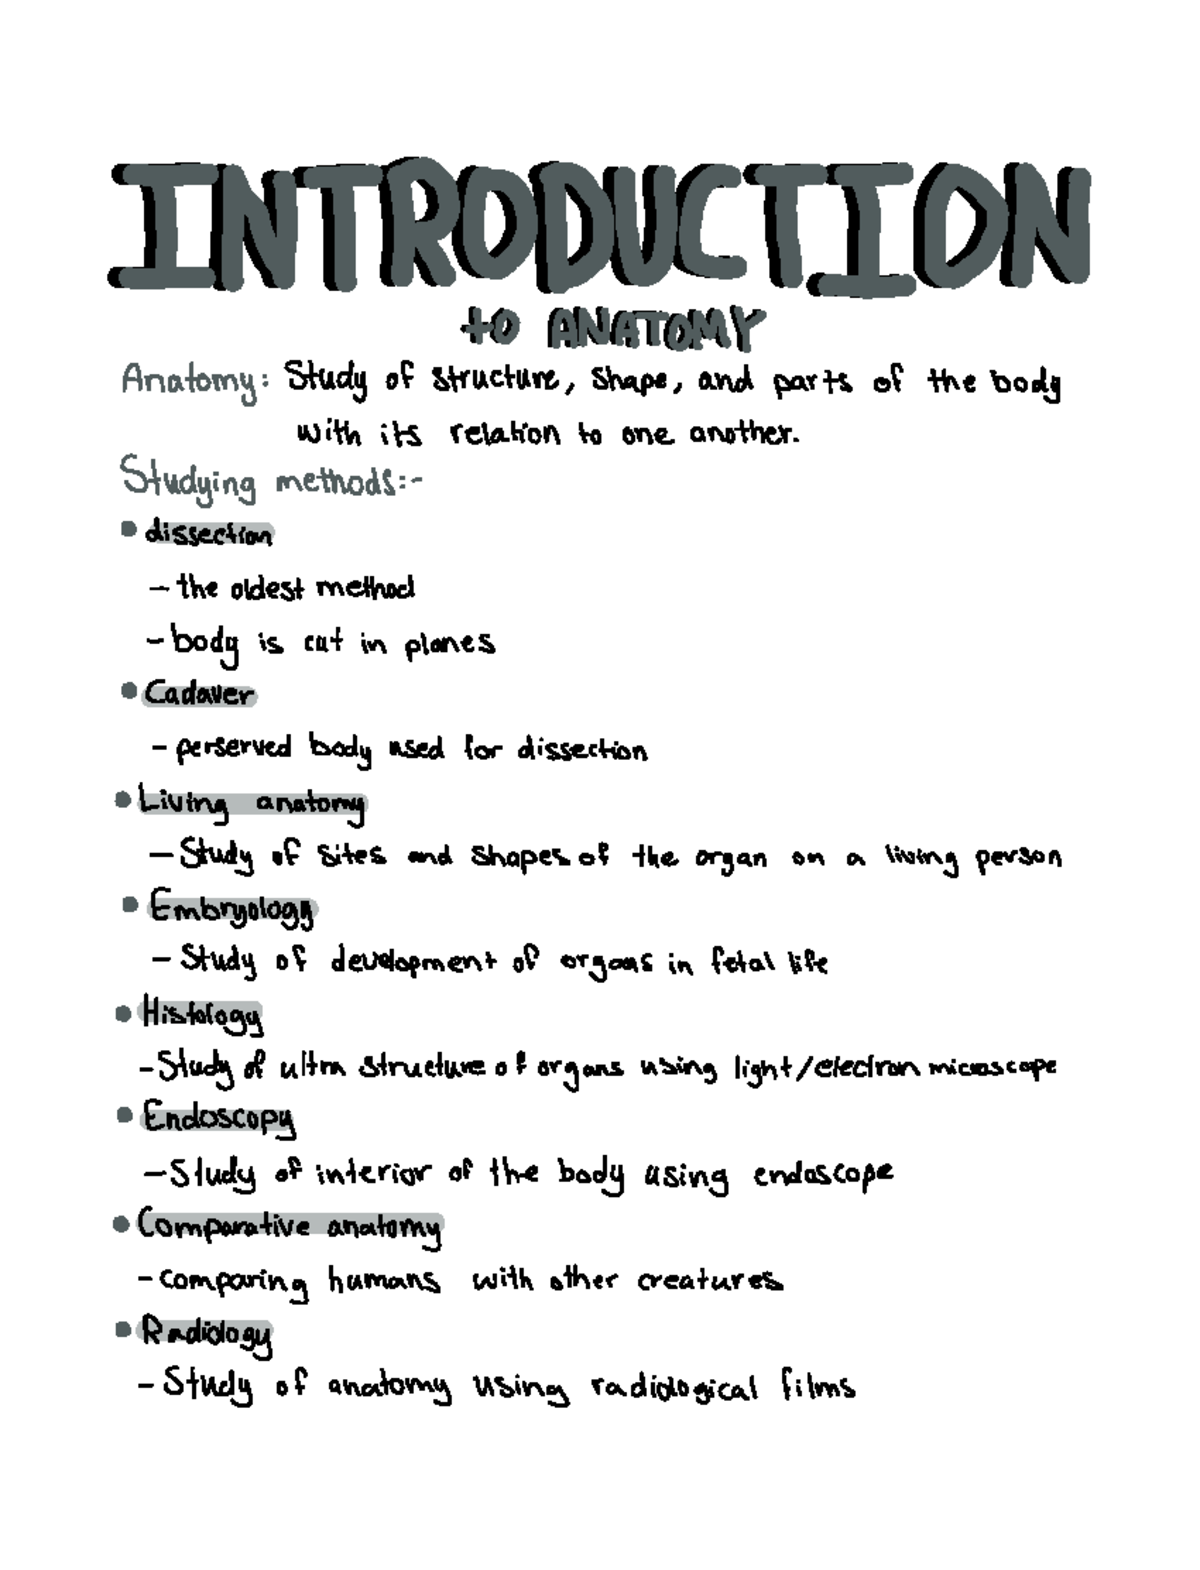 INTRODUCTION
to ANATOMY
Anatomy: Study of structure, shape, and parts of the body
with its relation to one another.
Studying methods:-
• dissection
- the oldest method
- body is cut in planes
• Cadaver
- perserved body used for dissection
• Living anatomy
- Study of sites and shapes of the organ on a living person
• Embryology
- Study of development of organs in fetal life
• Histology
- Study of ultra structure of organs using light/electron microscope
• Endoscopy
- Study of interior of the body using endoscope
• Comparative anatomy
- comparing humans with other creatures
• Radiology
- Study of anatomy using radiological films